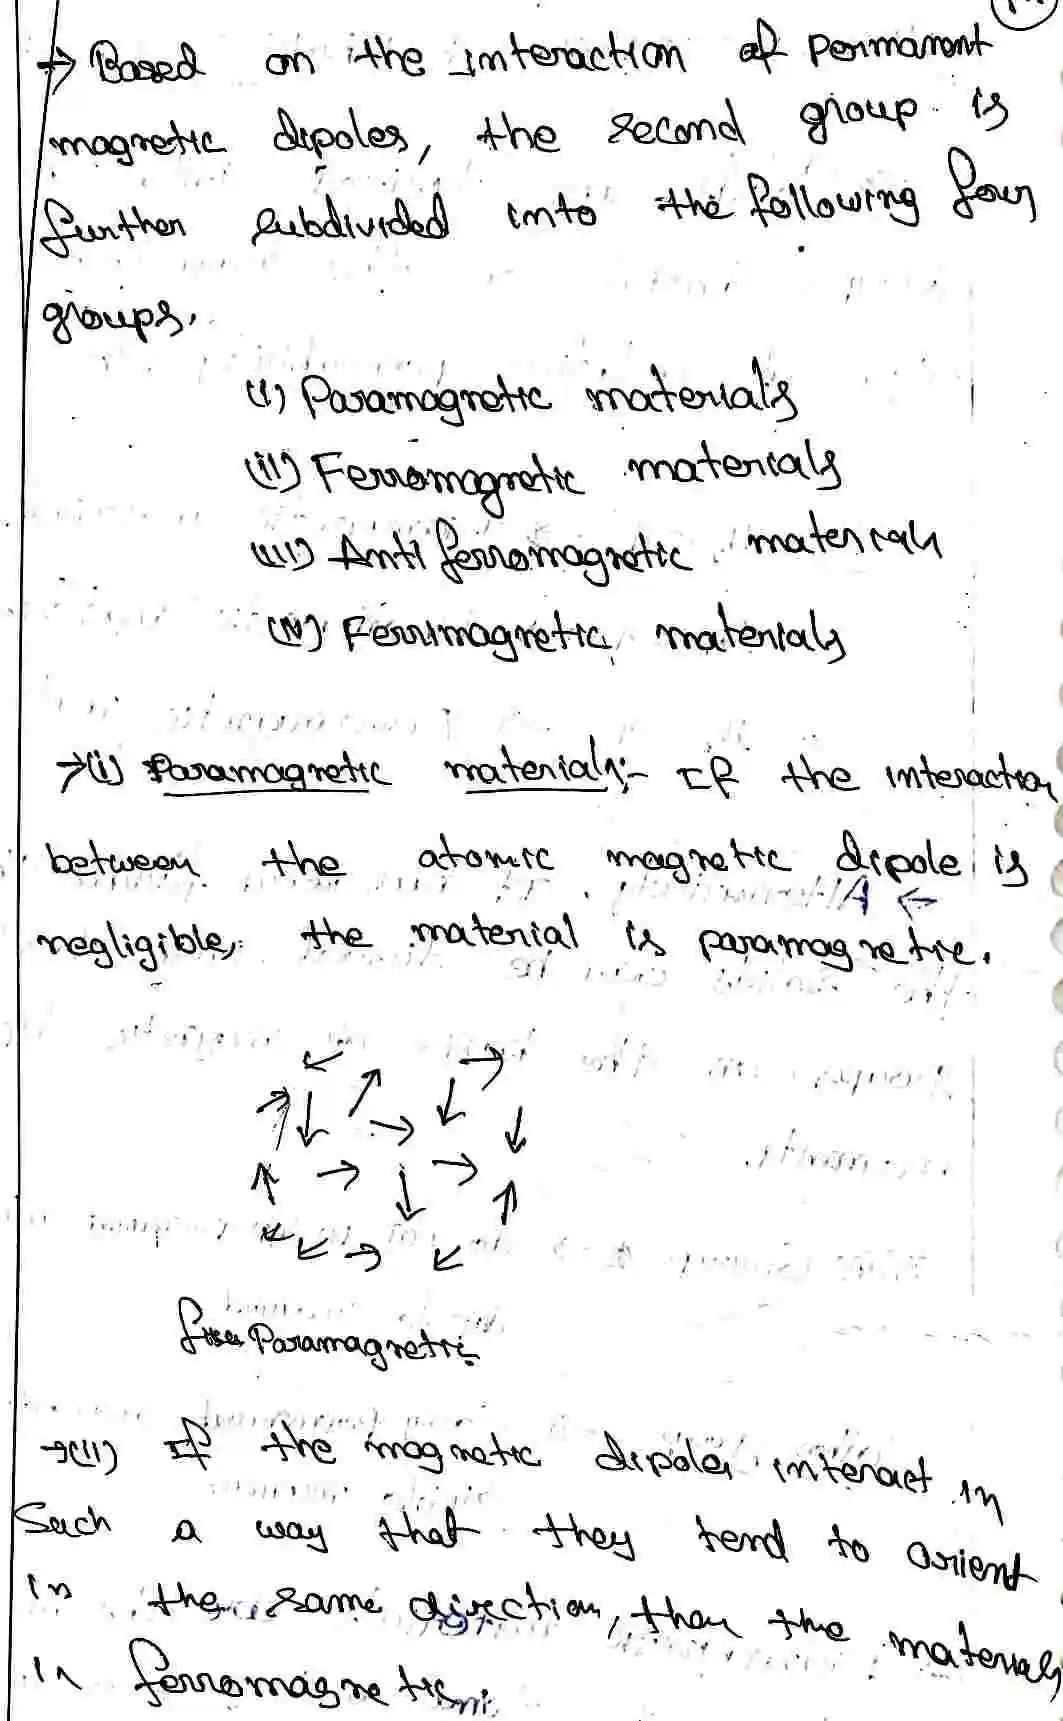 → Based on the interaction of permanant
magnetic dipoles, the second group is
further subdivided into the following four
groups.
(i) Paramagnetic materials
(ii) Ferromagnetic materials
(iii) Anti ferromagnetic materials
(iv) Ferrimagnetic materials
→(i) Paramagnetic materials:- If the interaction
between the atomic magnetic dipole is
negligible, the material is paramagnetic.
Paramagnetic
→(ii) If the magnetic dipoles interact in
Such a way that they tend to orient
in the same direction, then the materials
in ferromagnetic.